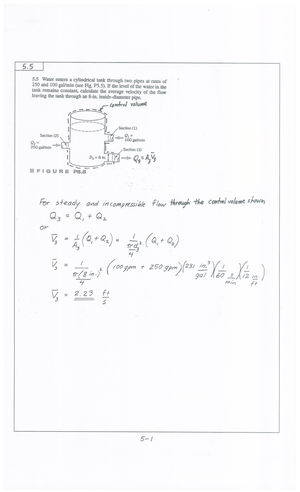 5.5
5.5 Water enters a cylindrical tank through two pipes at rates of
250 and 100 gal/min (see Fig. P5.5). If the level of the water in the
tank remains constant, calculate the average velocity of the flow
leaving the tank through an 8-in. inside-diameter pipe.
control volume
Section (1)
Q₁ =
100 gal/min
Section (2)
Q₂ =
250 gal/min
Section (3)
D₃ = 8 in.
Q₃ = A₃V̄₃
■ FIGURE P5.5
For steady and incompressible flow through the control volume shown,
Q₃ = Q₁ + Q₂
or
V̄₃ = 1/A₃ (Q₁ + Q₂) = 1/(πd₃²/4) (Q₁ + Q₂)
V̄₃ = 1/(π(8 in.)²/4) (100 gpm + 250 gpm)(231 in.³/gal)(1/60 s/min)(1/12 in/ft)
V̄₃ = 2.23 ft/s
5-1